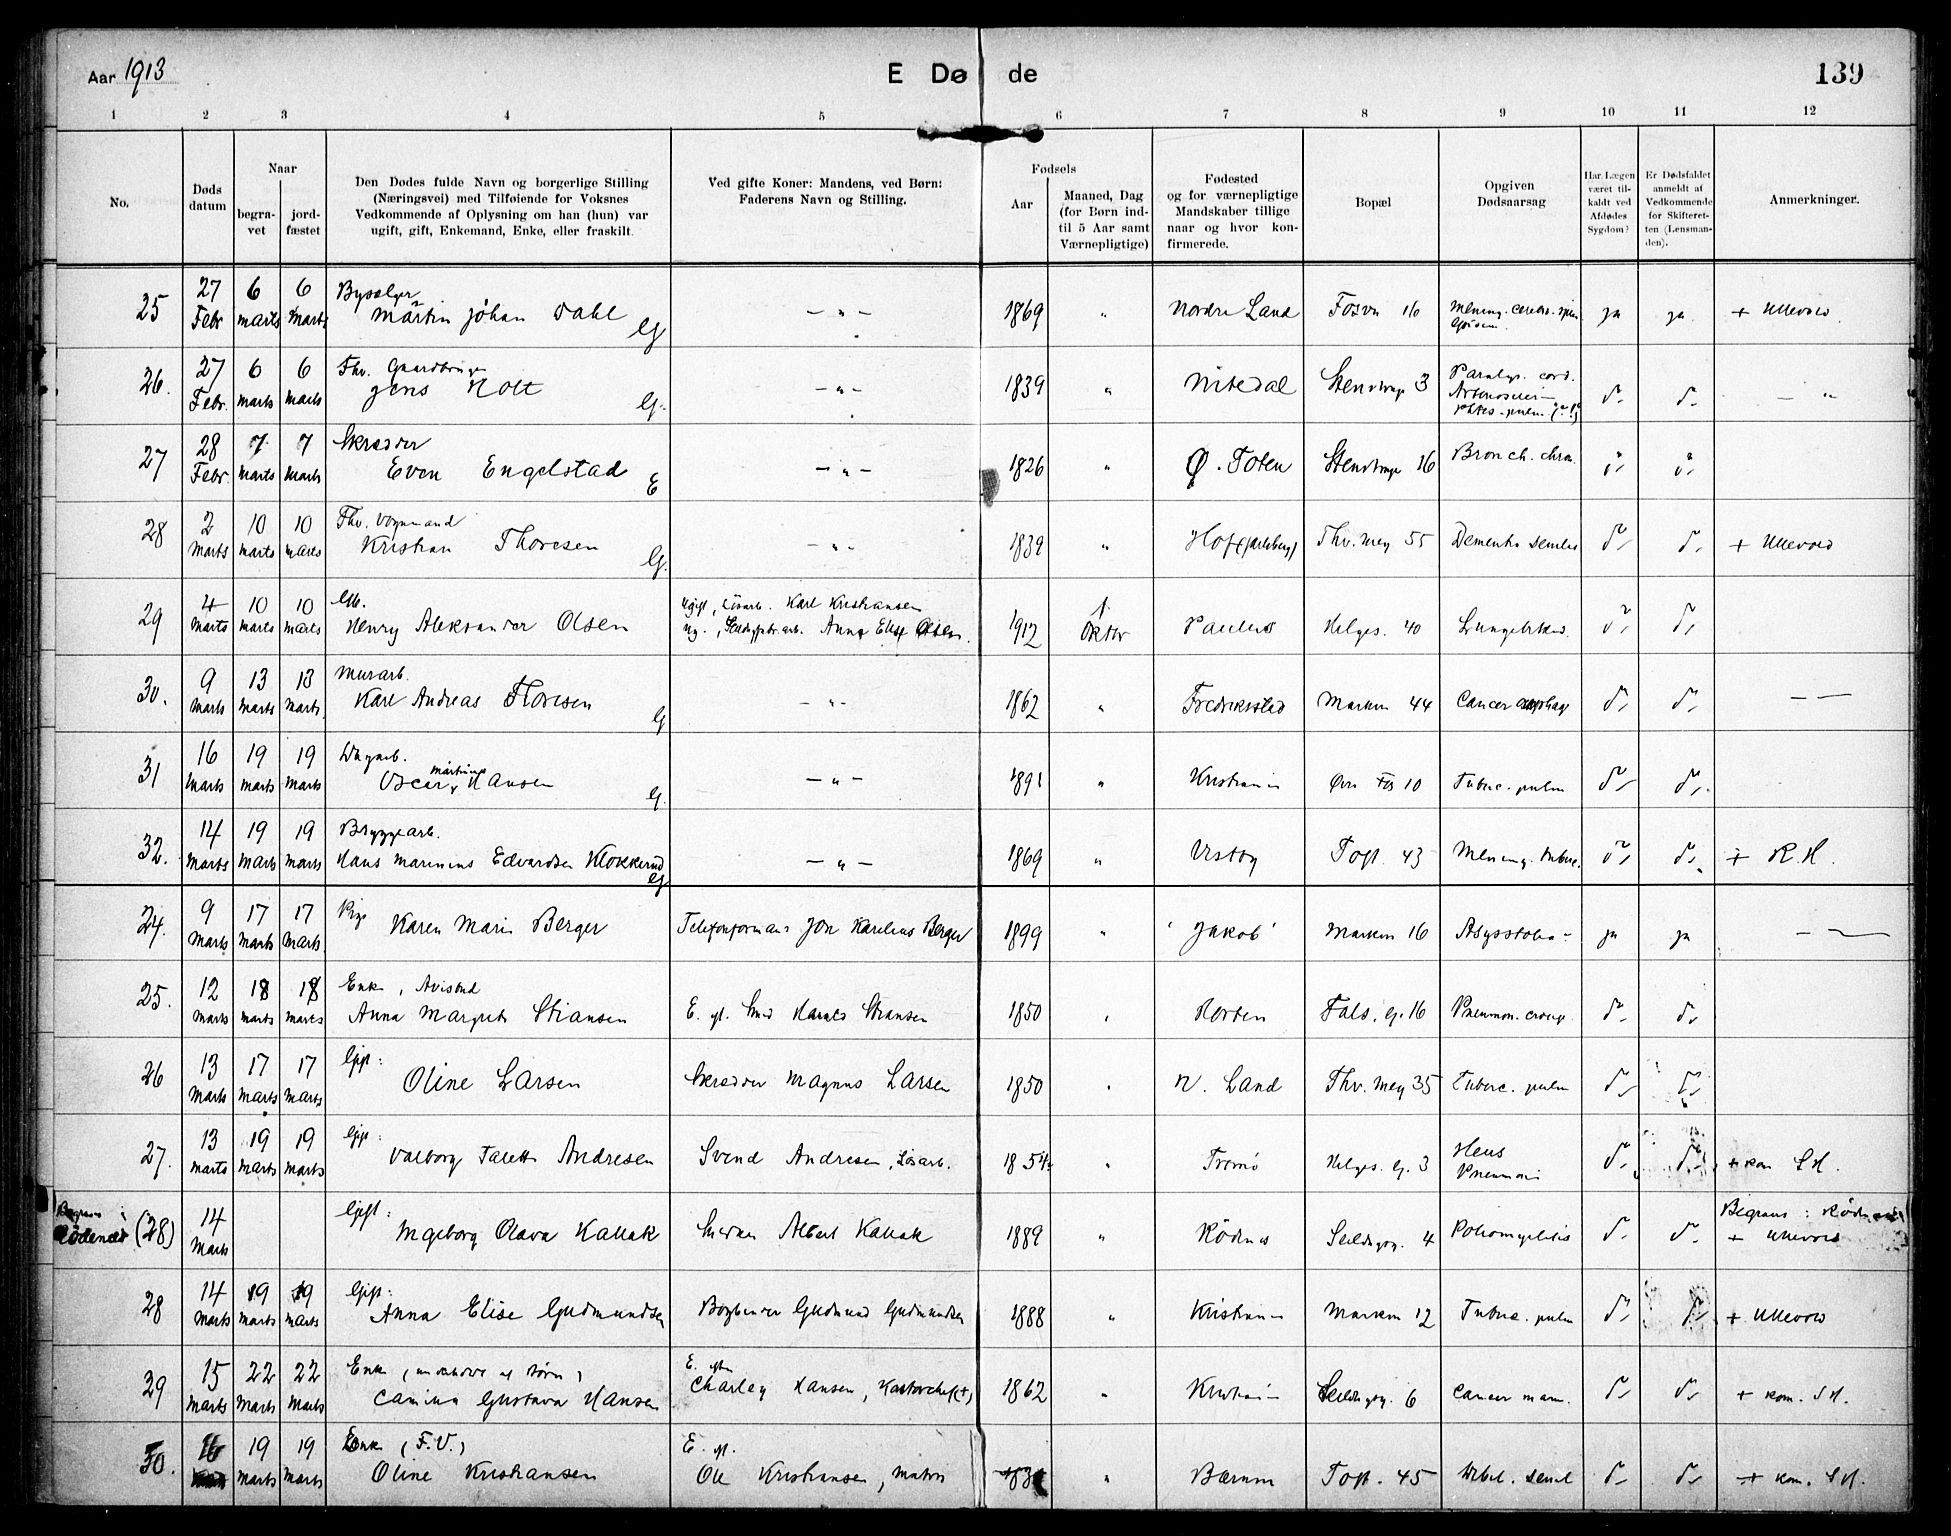 Aar 1913 E Dø de 139
1 2 3 4 5 6 7 8 9 10 11 12
No.
Døds datum
Naar
begra-vet
jord-fæstet
Den Dødes fulde Navn og borgerlige Stilling
(Næringsvei) med Tilføiende for Voksnes
Vedkommende af Oplysning om han (hun) var
ugift, gift, Enkemand, Enke, eller fraskilt.
Ved gifte Koner: Mandens, ved Børn:
Faderens Navn og Stilling.
Fødsels
Aar
Maaned, Dag
(for Børn ind-
til 5 Aar samt
Værnepligtige)
Fødested
og for værnepligtige
Mandskaber tillige
naar og hvor kon-
firmerede.
Bopæl
Opgiven
Dødsaarsag
Har Lægen
været til-
kaldt ved
Afdødes
Sygdom?
Er Dødsfaldet
anmeldt af
Vedkommende
for Skifteret-
ten (Lensman-
den).
Anmerkninger.
25 27 Febr 6 marts 6 marts Bysælger Martin Johan Dahl G — „ — 1869 „ Nordre Land Fossvn 16 Mening. cerebro-spin. ja ja + Ullevold.
26. 27 Febr. 6 marts 6 marts Fhv. Gaardbruger Jens Holt G. — „ — 1839 „ Nitedal Stenstrupg 3 Paralys. cord. d° d° — „
27 28 Febr. 7 marts 7 marts Skrædder Even Engelstad E — „ — 1826 „ Ø. Toten Stenstrupg 16 Bronch. chron. d° d°
28 2 marts 10 marts 10 marts Fhv. Vognmand Kristian Thoresen G. — „ — 1839 „ Hof (Jarlsberg) Thv. Mey 55 Dementia senilis d° d° + Ullevold
29 4 marts 10 marts 10 marts Henry Aleksander Olsen Ugift, Løsarb. Karl Kristiansen ug., arb. Anna Elise Olsen. 1912 1 Oktbr Paulus Helges. 40 Lungebetænd. d° d°
30. 9 marts 13 marts 13 marts Murarb. Karl Andreas Thoresen G — „ — 1862 „ Fredriksstad Markvn 44 Cancer d° d° — —
31 16 marts 19 marts 19 marts Oscar Martinus Hansen G. — „ — 1891 „ Kristiania Øvre Fos 10 Tuberc. pulm d° d°
32. 14 marts 19 marts 19 marts Bryggearb. Hans Marinius Edvardsen Klokkerud G — „ — 1869 „ Vestby Toft. 43 Mening. tuberc. d° d° + R. H.
24. 9 marts 17 marts 17 marts Pige Karen Marie Berger Telefonformand Jon Karelius Berger 1899 „ Jakob Markvn 16 Asystolia ja ja — —
25. 12 marts 18 marts 18 marts Enke, Avisbud Anna Margrete Stiansen E. ef. Smed Harald Stiansen 1850 „ Horten Fals. g. 16 Pneumon. croup. d° d°
26 13 marts 17 marts 17 marts Gift: Oline Larsen Skrædder Magnus Larsen 1850 „ N. Land Thv. Mey 35 Tuberc. pulm d° d°
27. 13 marts 19 marts 19 marts Gift: Valborg Talette Andresen Svend Andresen, Løsarb. 1854 „ Tromø Helges. g. 3 Ileus Pneumoni d° d° + kom S H.
Begraves i Rødenes (28) 14 marts Gift: Ingeborg Olava Kallak Snedker Albert Kallak 1889 „ Rødnes Seildugsg. 4 Poliomyelitis d° d° Begraves i Rødnes + Ullevold
28 14 marts 19 marts 19 marts Gift: Anna Elise Gudmundsen Bogbinder Gudmund Gudmundsen 1888 „ Kristiania Markvn 12 Tuberc. pulm d° d° + Ullevold
29 15 marts 22 marts 22 marts Enke (underholdt af børn) Camilla Gustava Hansen E. efter Charley Hansen, 1862 „ Kristiania Seildugsg. 6 Cancer mam. d° d° + kom. S H.
30. 16 19 marts 19 marts Enke (F.V.) Oline Kristiansen E. ef. Ole Kristiansen, Matros „ Bærum Toft. 45 Debil. senil d° d° + kom. S H.